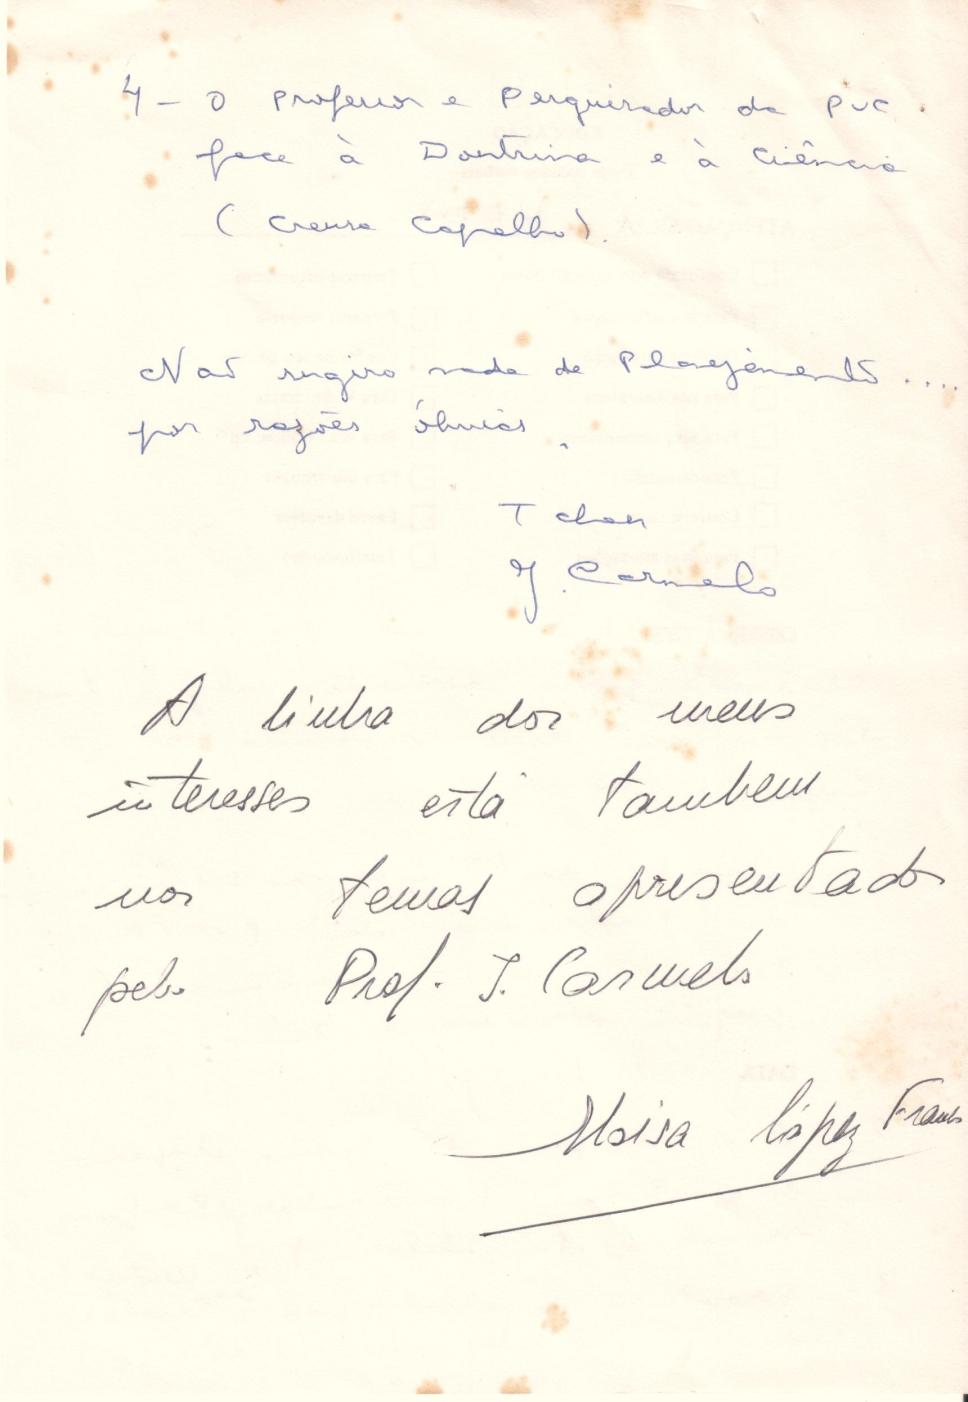 4 - O professor e pesquisador da PUC
face à Doutrina e à Ciência
(Creusa Capalbo).
Não sugiro nada de Planejamento ....
por razões óbvias.
Tchau
J. Carmelo
A linha dos meus
interesses está tambem
nos temas apresentados
pelo Prof. J. Carmelo
López Franco